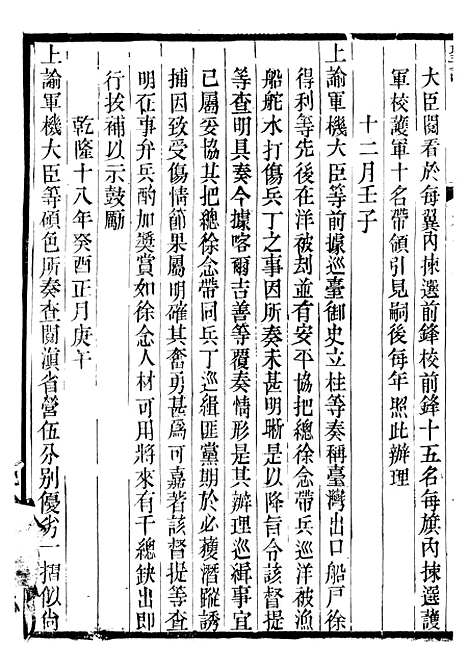 大臣閱看於每翼內揀選前鋒校前鋒十五名每旗內揀選護
軍校護軍十名帶領引見嗣後每年照此辦理
十二月壬子
上諭軍機大臣等前據巡臺御史立柱等奏稱臺灣出口船戶徐
得利等先後在洋被刦並有安平協把總徐念帶兵巡洋被漁
船舵水打傷兵丁之事因所奏未甚明晰是以降旨令該督提
等查明具奏今據喀爾吉善等覆奏情形是其辦理巡緝事宜
已屬妥協其把總徐念帶同兵丁巡緝匪黨期於必獲潛蹤誘
捕因致受傷情節果屬明確其奮勇甚為可嘉著該督提等查
明在事弁兵酌加獎賞如徐念人材可用將來有千總缺出即
行拔補以示鼓勵
乾隆十八年癸酉正月庚午
上諭軍機大臣等碩色所奏查閱滇省營伍分別優劣一摺似尚